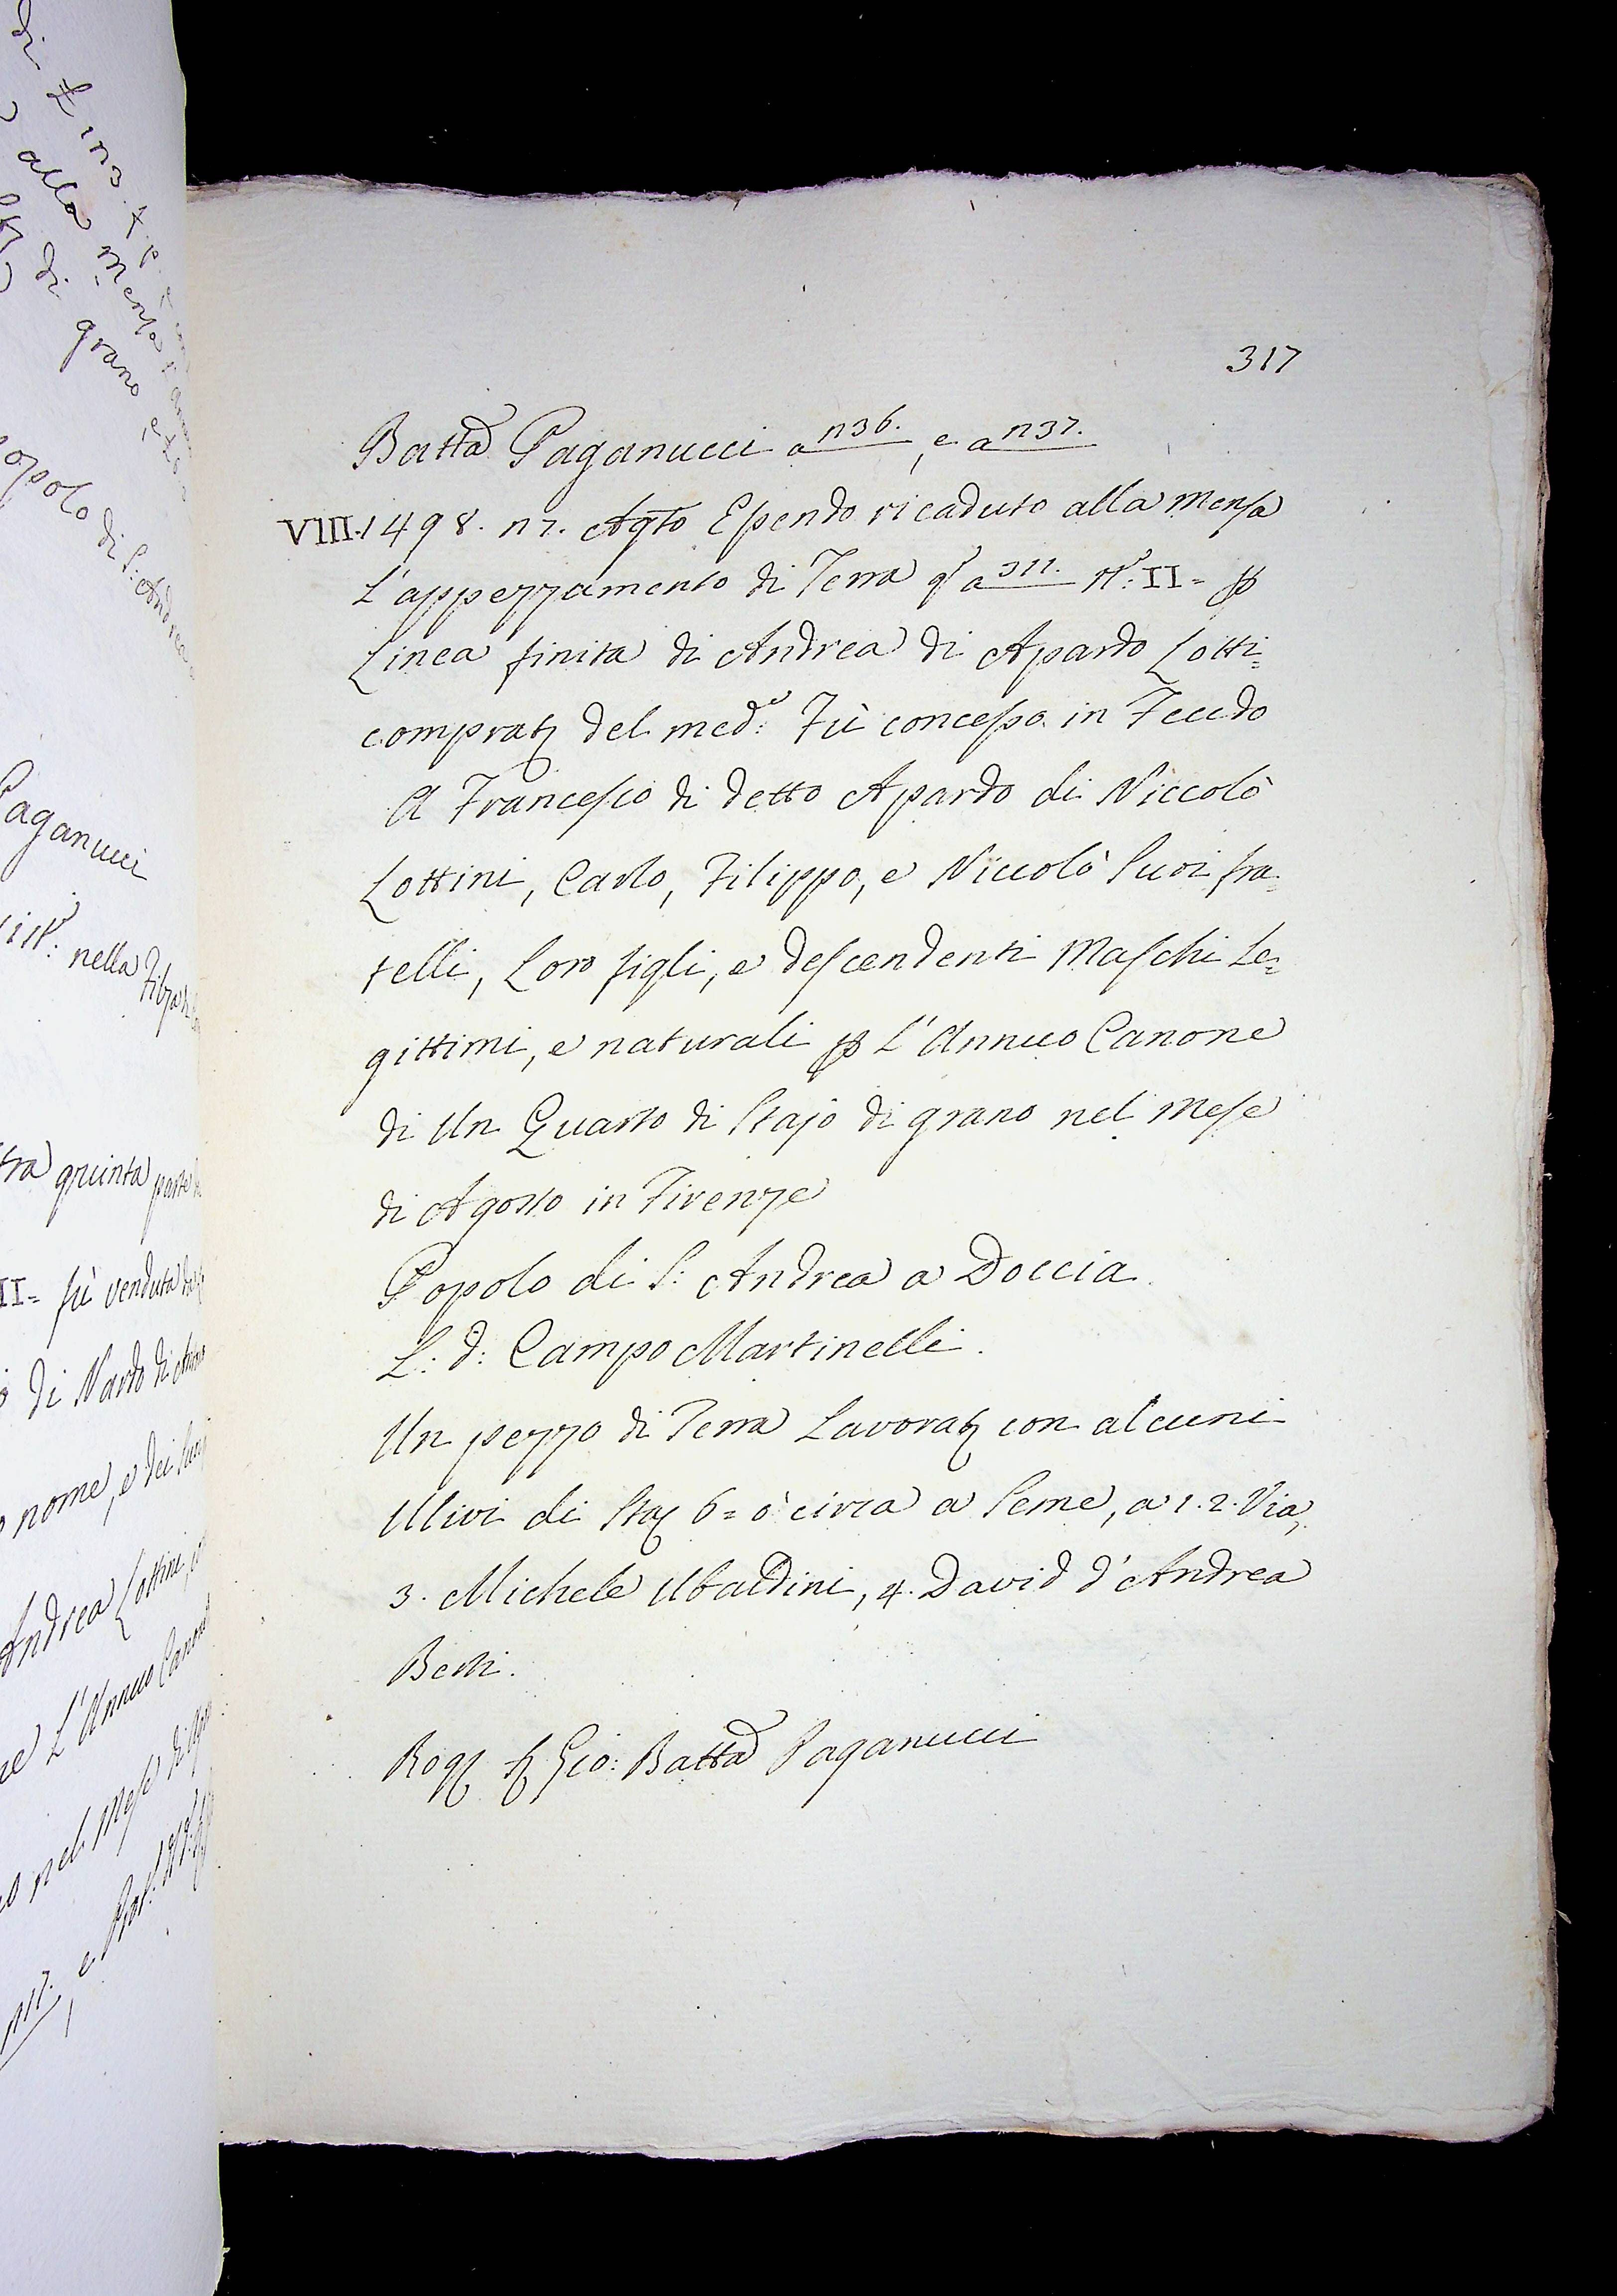 di £ 123. 4. p.
alla Mensa
di grano, e Lo
Popolo di S: Andrea
Paganucci
nella Filza
tra quinta parte
II= fù venduta
di Nardo di
nome, e dei suoi
Andrea Lottini
L'Annuo Canone
nel Mese di
317
Batta Paganucci a 136. , e a 137.
VIII. 1498. 17. Agto Essendo ricaduto alla Mensa
L'appezzamento di Terra qe a 311. No: II= p
Linea finita di Andrea di Apardo Lotti=
compratq del medo: Fù concesso in Feudo
A Francesco di detto Apardo di Niccolò
Lottini, Carlo, Filippo, e Niccolò Suoi fra=
telli, Loro figli, e descendenti Maschi Le=
gittimi, e naturali p L'Annuo Canone
di Un Quarto di Stajo di grano nel Mese
di Agosto in Firenze
Popolo di S: Andrea a Doccia
L: d: Campo Martinelli.
Un pezzo di Terra Lavoratq con alcuni
Ulivi di Staq 6= ò circa a Seme, a 1. 2. Via,
3. Michele Ubaldini, 4. David d'Andrea
Berti.
Rogq Sq Gio: Batta Paganucci